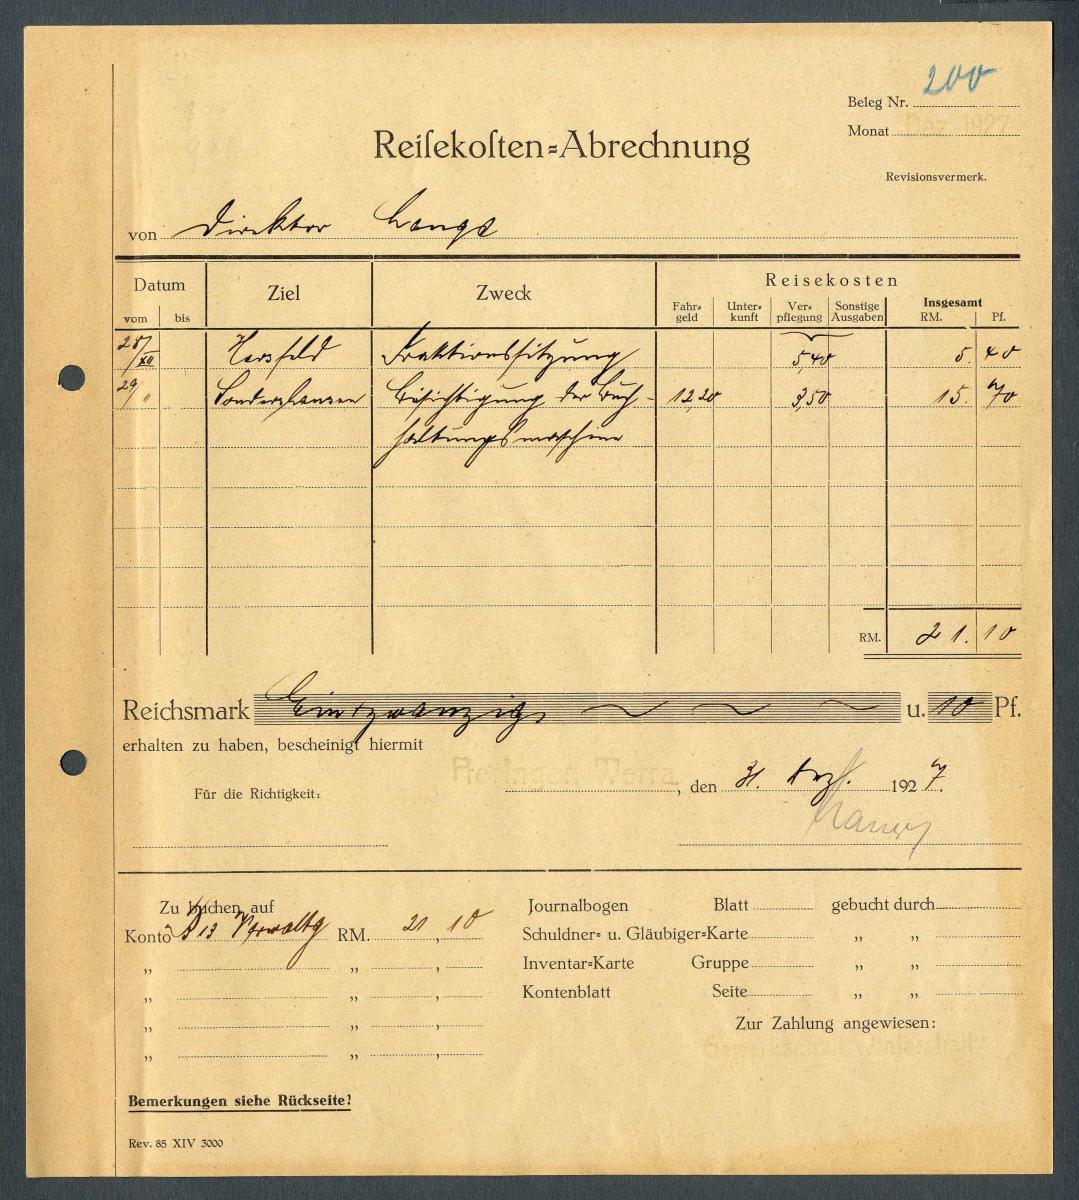 200
Beleg Nr.
Monat Dez. 1927
Reiſekoſten-Abrechnung
Revisionsvermerk.
von Direktor Lange
Datum Ziel Zweck Reisekosten
vom bis Fahrgeld Unterkunft Verpflegung Sonstige Ausgaben Insgesamt RM. Pf.
28/XII Hersfeld Fraktionssitzung 5,40 5. 40
29/" Sondershausen Besichtigung der Buch- 12,20 3,50 15. 70
haltungsmaschine
RM. 21. 10
Reichsmark Einundzwanzig u. 10 Pf.
erhalten zu haben, bescheinigt hiermit
Heringen Werra, den 31. Dez. 1927.
Für die Richtigkeit:
Zu buchen auf
Konto B 13 Verwaltg RM. 21, 10
„ „ ,
„ „ ,
„ „ ,
„ „ ,
Journalbogen Blatt gebucht durch
Schuldner- u. Gläubiger-Karte „ „
Inventar-Karte Gruppe „ „
Kontenblatt Seite „ „
Zur Zahlung angewiesen:
Gewerkschaft Wintershall
Bemerkungen siehe Rückseite!
Rev. 85 XIV 3000